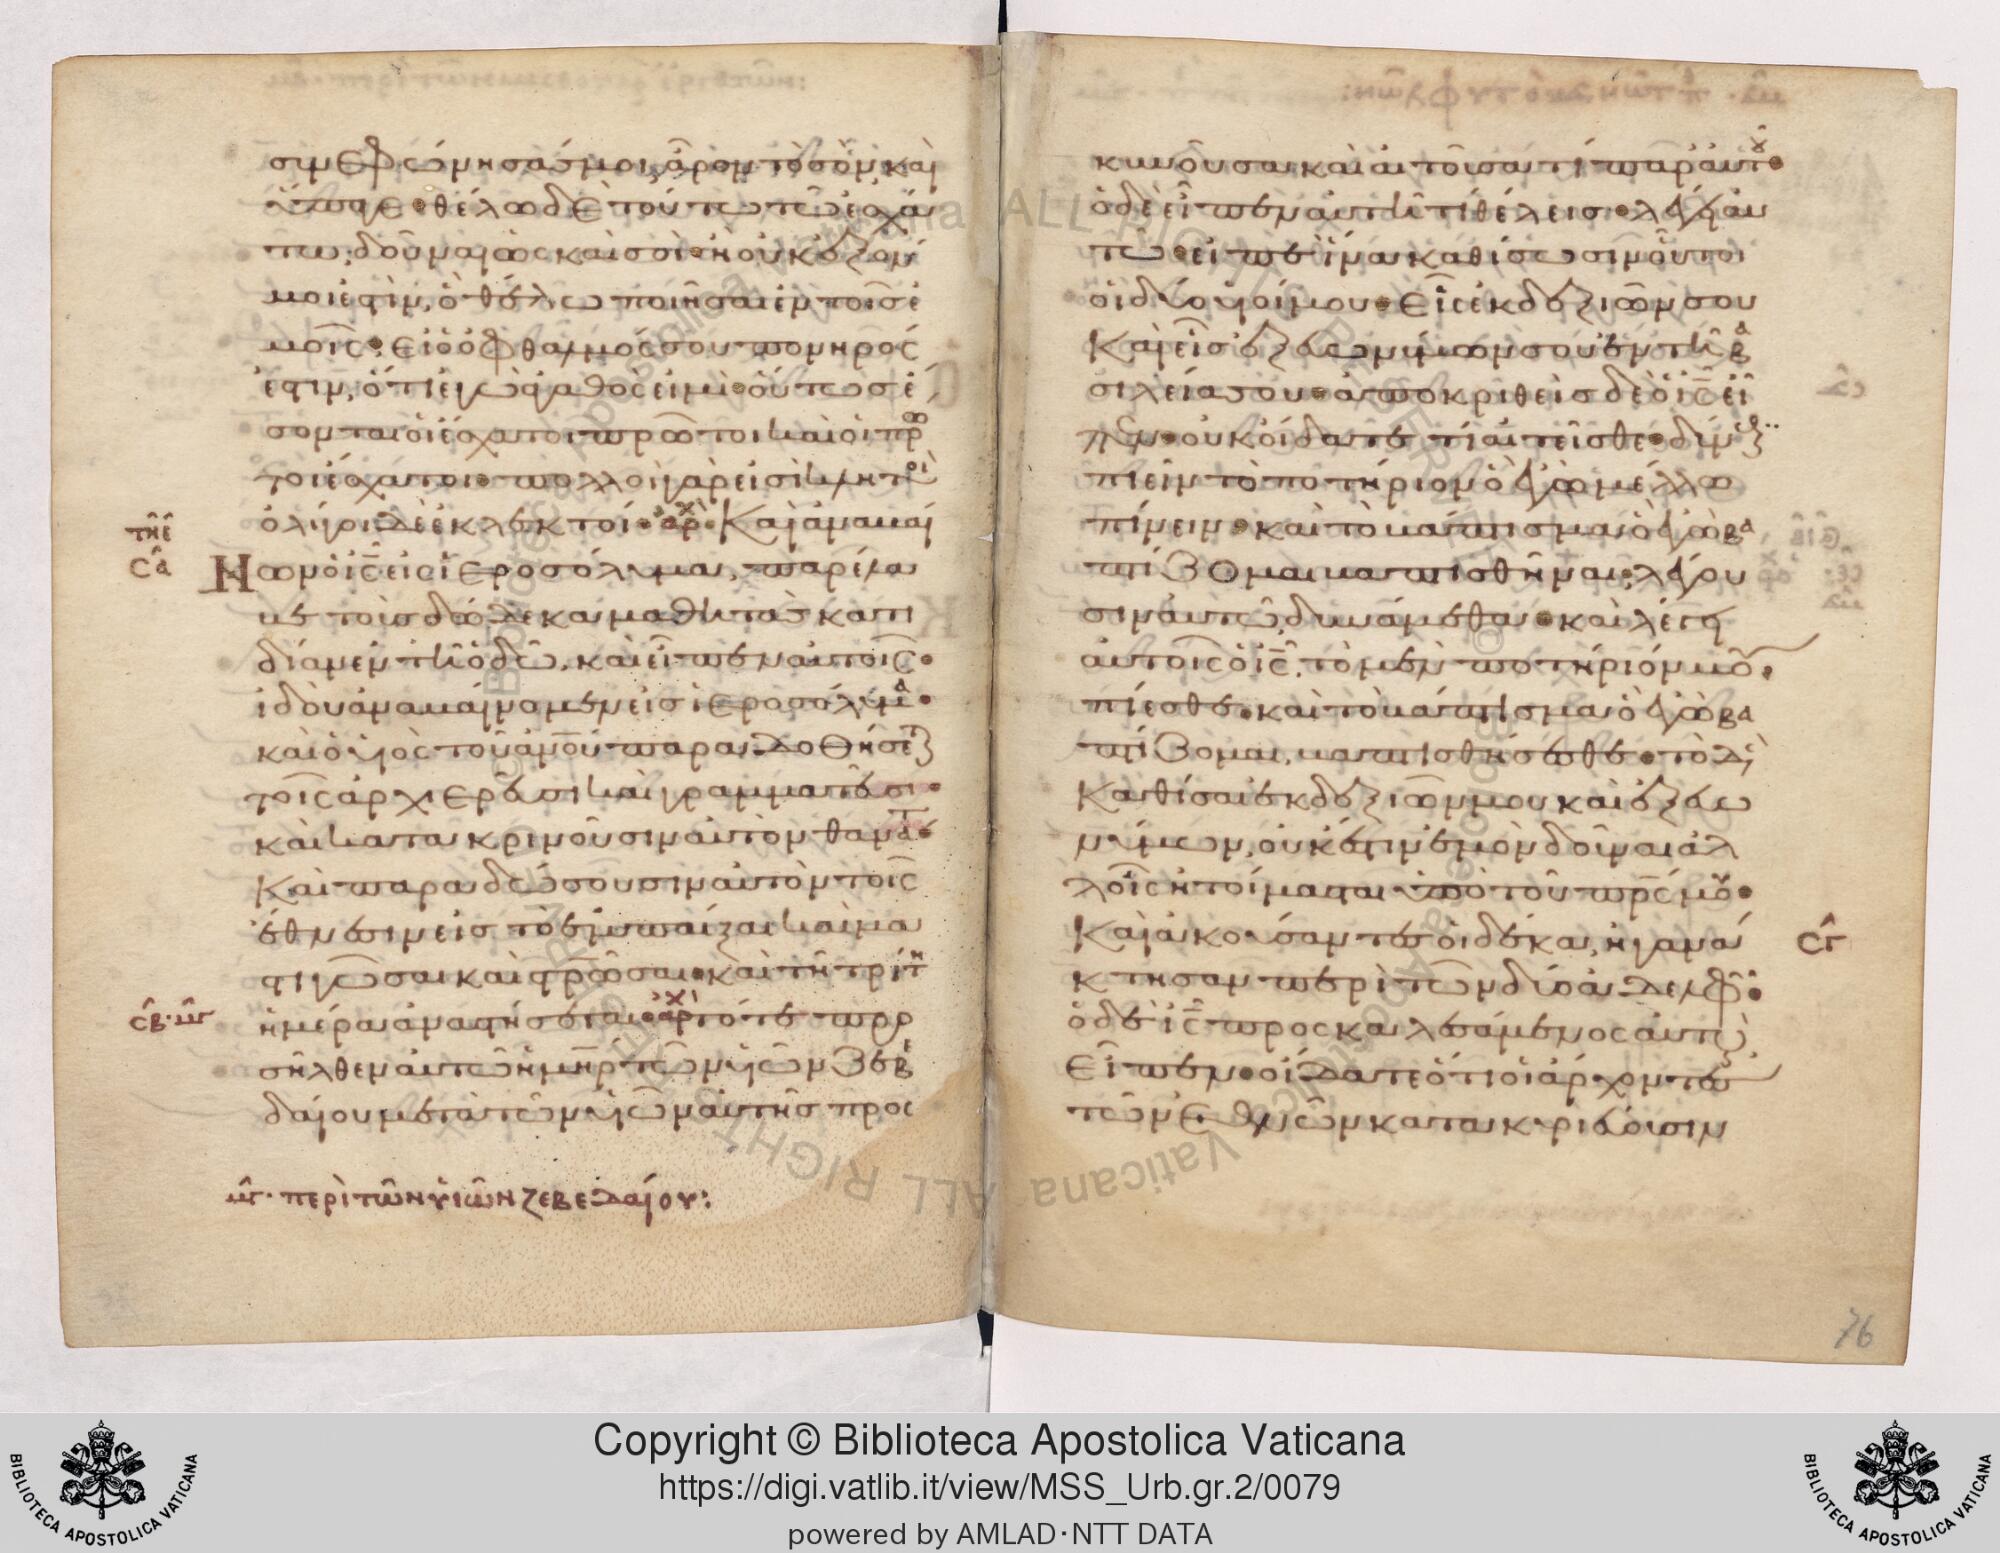 σιν ἐφώνησάς μοι, ἆρον τὸ σὸν καὶ
ὕπαγε· θέλω δὲ τούτω τῶ ἐσχά
τω, δοῦναι ὡς καὶ σοί· ἢ οὐκ ἔξον
μοί ἐστιν, ὃ θέλω ποιῆσαι ἐν τοῖς ἐ
μοῖς· εἰ ὁ ὀφθαλμός σου πονηρός
ἐστιν, ὅτι ἐγὼ ἀγαθός εἰμι· οὕτως ἔ
σονται οἱ ἔσχατοι πρῶτοι καὶ οἱ πρῶ
τοι ἔσχατοι· πολλοὶ γάρ εἰσι κλητοὶ
ὀλίγοι δὲ ἐκλεκτοί· ἀρχ· Καὶ ἀναβαί
τῆ ε̂
σα
Νων ὁ ις εἰς ἱεροσόλυμα, παρέλα
βε τοὺς δώδεκα μαθητὰς κατι
δίαν ἐν τῆ ὁδῶ, καὶ εἶπεν αὐτοῖς·
ἰδοὺ ἀναβαίνομεν εἰς ἱεροσόλυμα·
καὶ ὁ υἱὸς τοῦ ανου παραδοθήσεται
τοῖς ἀρχιερεῦσι καὶ γραμματεῦσι·
καὶ κατακρινοῦσιν αὐτὸν θανάτω·
Καὶ παραδώσουσιν αὐτὸν τοῖς
ἔθνεσιν εἰς τὸ ἐμπαίξαι καὶ μα
στιγῶσαι καὶ στρῶσαι· καὶ τῆ τρίτη
σβ· μγ
ἡμέρα ἀναστήσεται· ἀρχ τότε προ
σῆλθεν αὐτῶ ἡ μηρ τῶν υἱῶν Ζεβε
δαίου μετὰ τῶν υἱῶν αὐτῆς προσ
μγ· περὶ τῶν υἱῶν ζεβεδαίου:
κυνοῦσα καὶ αἰτοῦσά τι παρ αὐτοῦ·
ὁ δὲ εἶπεν αὐτῆ τί θέλεις· λέγει αυ
τῶ· εἰπὲ ἵνα καθίσωσιν οὗτοι
οἱ δύο υἱοί μου· εἷς ἐκ δεξιῶν σου
Καὶ εἷς ἐξ εὐωνύμων σου ἐν τῆ βα
σιλεία σου· ἀποκριθεὶς δὲ ὁ ις εἶ
πεν· οὐκ οἴδατε τί αἰτεῖσθε· δύνασθε
πιεῖν τὸ ποτήριον ὃ ἐγὼ μέλλω
πίνειν· καὶ τὸ βάπτισμα ὃ ἐγὼ βα
πτίζομαι βαπτισθῆναι· λέγου
σιν αὐτῶ, δυνάμεθα· καὶ λέγει
αὐτοῖς ὁ ις, τὸ μὲν ποτήριόν μου·
πίεσθε· καὶ τὸ βάπτισμα ὃ ἐγὼ βα
πτίζομαι, βαπτισθήσεσθε· τὸ δὲ
Καθίσαι ἐκ δεξιῶν μου καὶ ἐξ εὐω
νύμων, οὐκ ἔστιν ἐμὸν δοῦναι ἀλ
λοῖς ἡτοίμασται ὑπὸ τοῦ πρς μου·
Καὶ ἀκούσαντες οἱ δέκα, ἠγανά
σγ
κτησαν περὶ τῶν δύο ἀδελφῶν·
ὁ δὲ ις προσκαλεσάμενος αὐτοὺς
εἶπεν· οἴδατε ὅτι οἱ ἄρχοντες
τῶν ἐθνῶν κατακυριεύουσιν
76
Copyright © Biblioteca Apostolica Vaticana
https://digi.vatlib.it/view/MSS_Urb.gr.2/0079
powered by AMLAD·NTT DATA
BIBLIOTECA APOSTOLICA VATICANA
BIBLIOTECA APOSTOLICA VATICANA